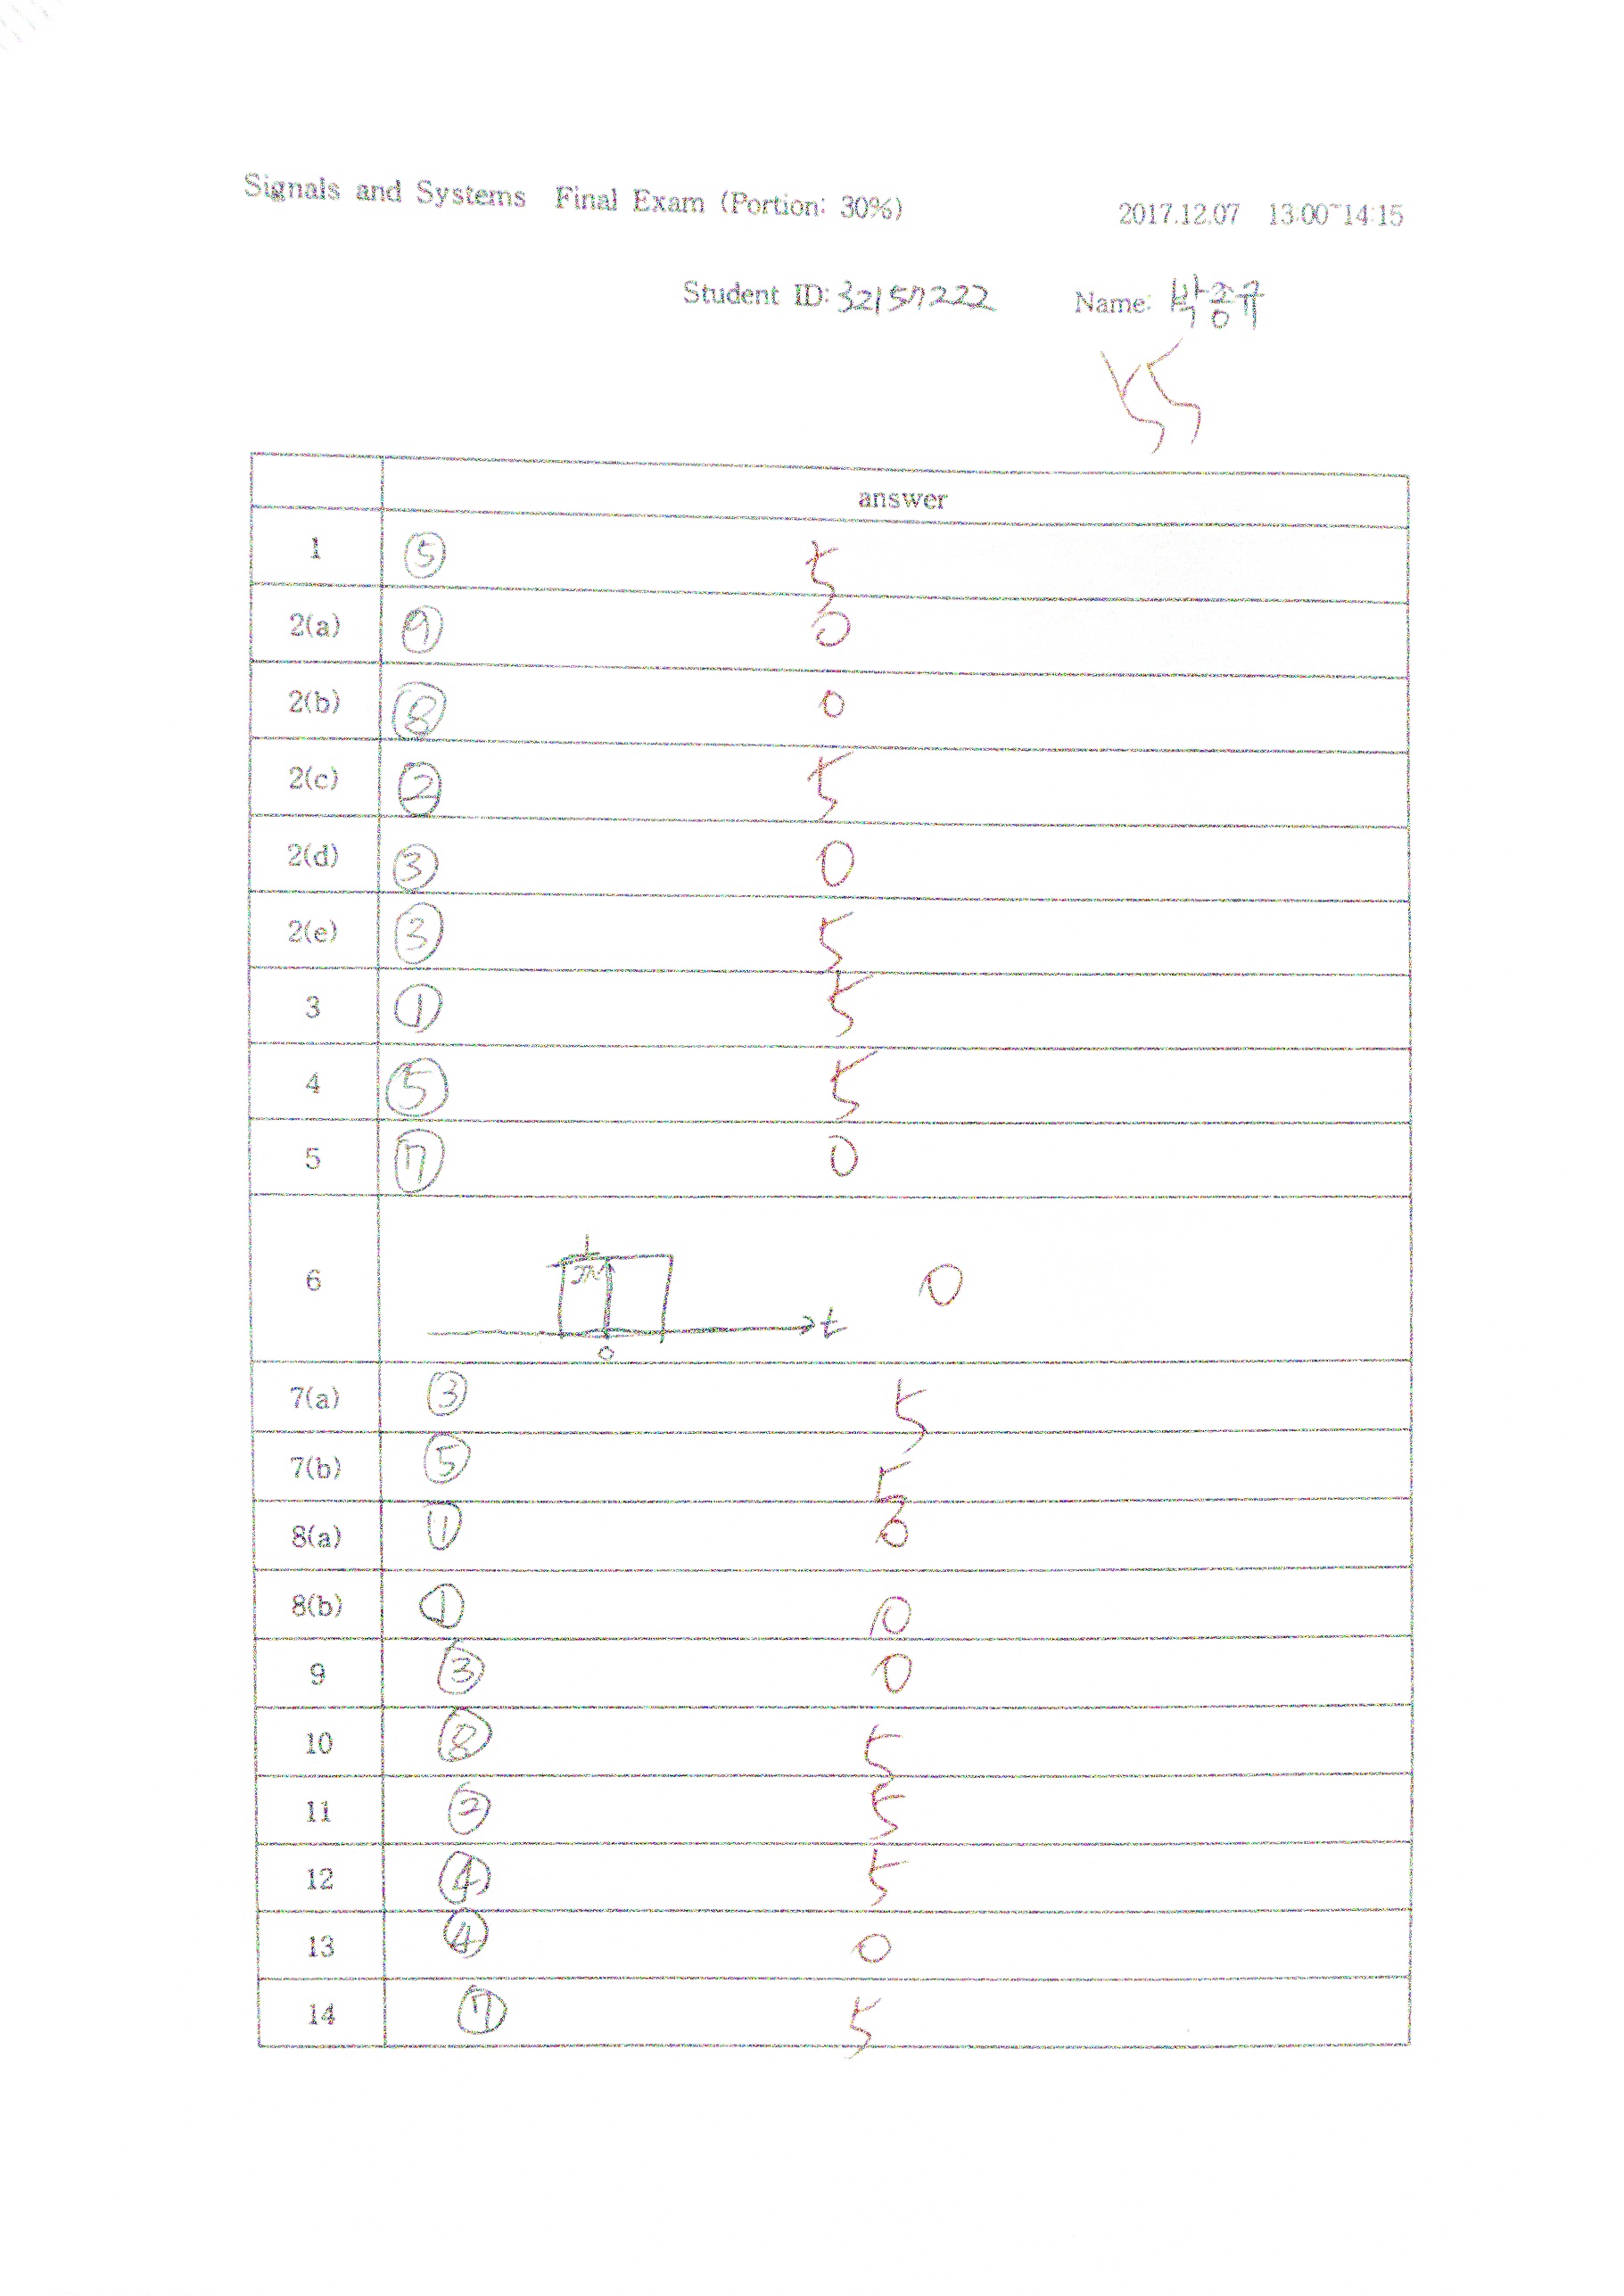 Signals and Systems Final Exam (Portion: 30%)
2017.12.07 13:00~14:15
Student ID: 32157222 Name: 박종규
55
answer
1 ⑤ 5
2(a) ⑨ 0
2(b) ⑧ 0
2(c) ② 5
2(d) ③ 0
2(e) ③ 5
3 ① 5
4 ⑤ 5
5 ⑦ 0
6 0
t
0
7(a) ③ 5
7(b) ⑤ 5
8(a) ① 0
8(b) ① 10
9 ③ 0
10 ⑧ 5
11 ② 5
12 ④ 5
13 ④ 0
14 ⑦ 5